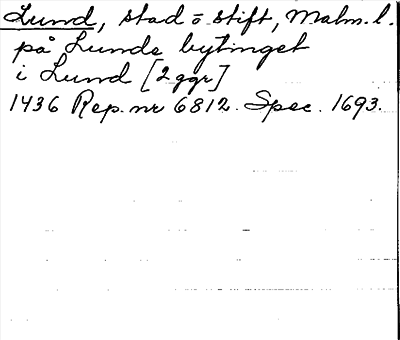 Lund, stad o stift, Malm. l.
på Lunds bytinget
i Lund [2 ggr]
1436 Rep. nr 6812. Spec. 1693.